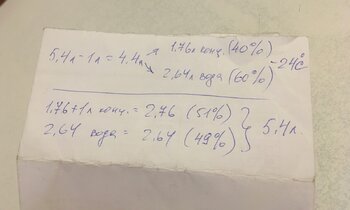 5,4л - 1л = 4,4л
1.76л конц (40%)
2,64л вода (60%)
-24°C
1,76+1л конц. = 2,76 (51%)
2,64 вода = 2,64 (49%)
5,4л.